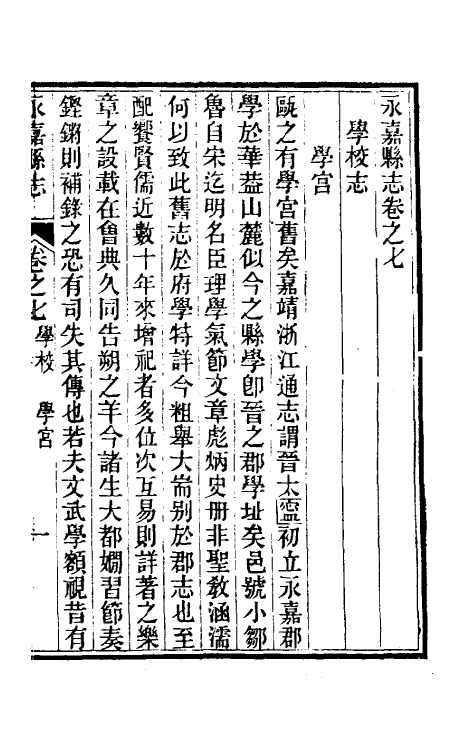 永嘉縣志卷之七
學校志
學宫
甌之有學宫舊矣嘉靖浙江通志謂晉太盌初立永嘉郡
學於華葢山麓似今之縣學卽晉之郡學址矣邑號小鄒
魯自宋迄明名臣理學氣節文章彪炳史册非聖敎涵濡
何以致此舊志於府學特詳今粗舉大耑别於郡志也至
配饗賢儒近數十年來增祀者多位次互易則詳著之樂
章之設載在會典久同告朔之羊今諸生大都嫺習節奏
鏗鏘則補錄之恐有司失其傳也若夫文武學額視昔有
永嘉縣志
卷之七 學校 學宫 一